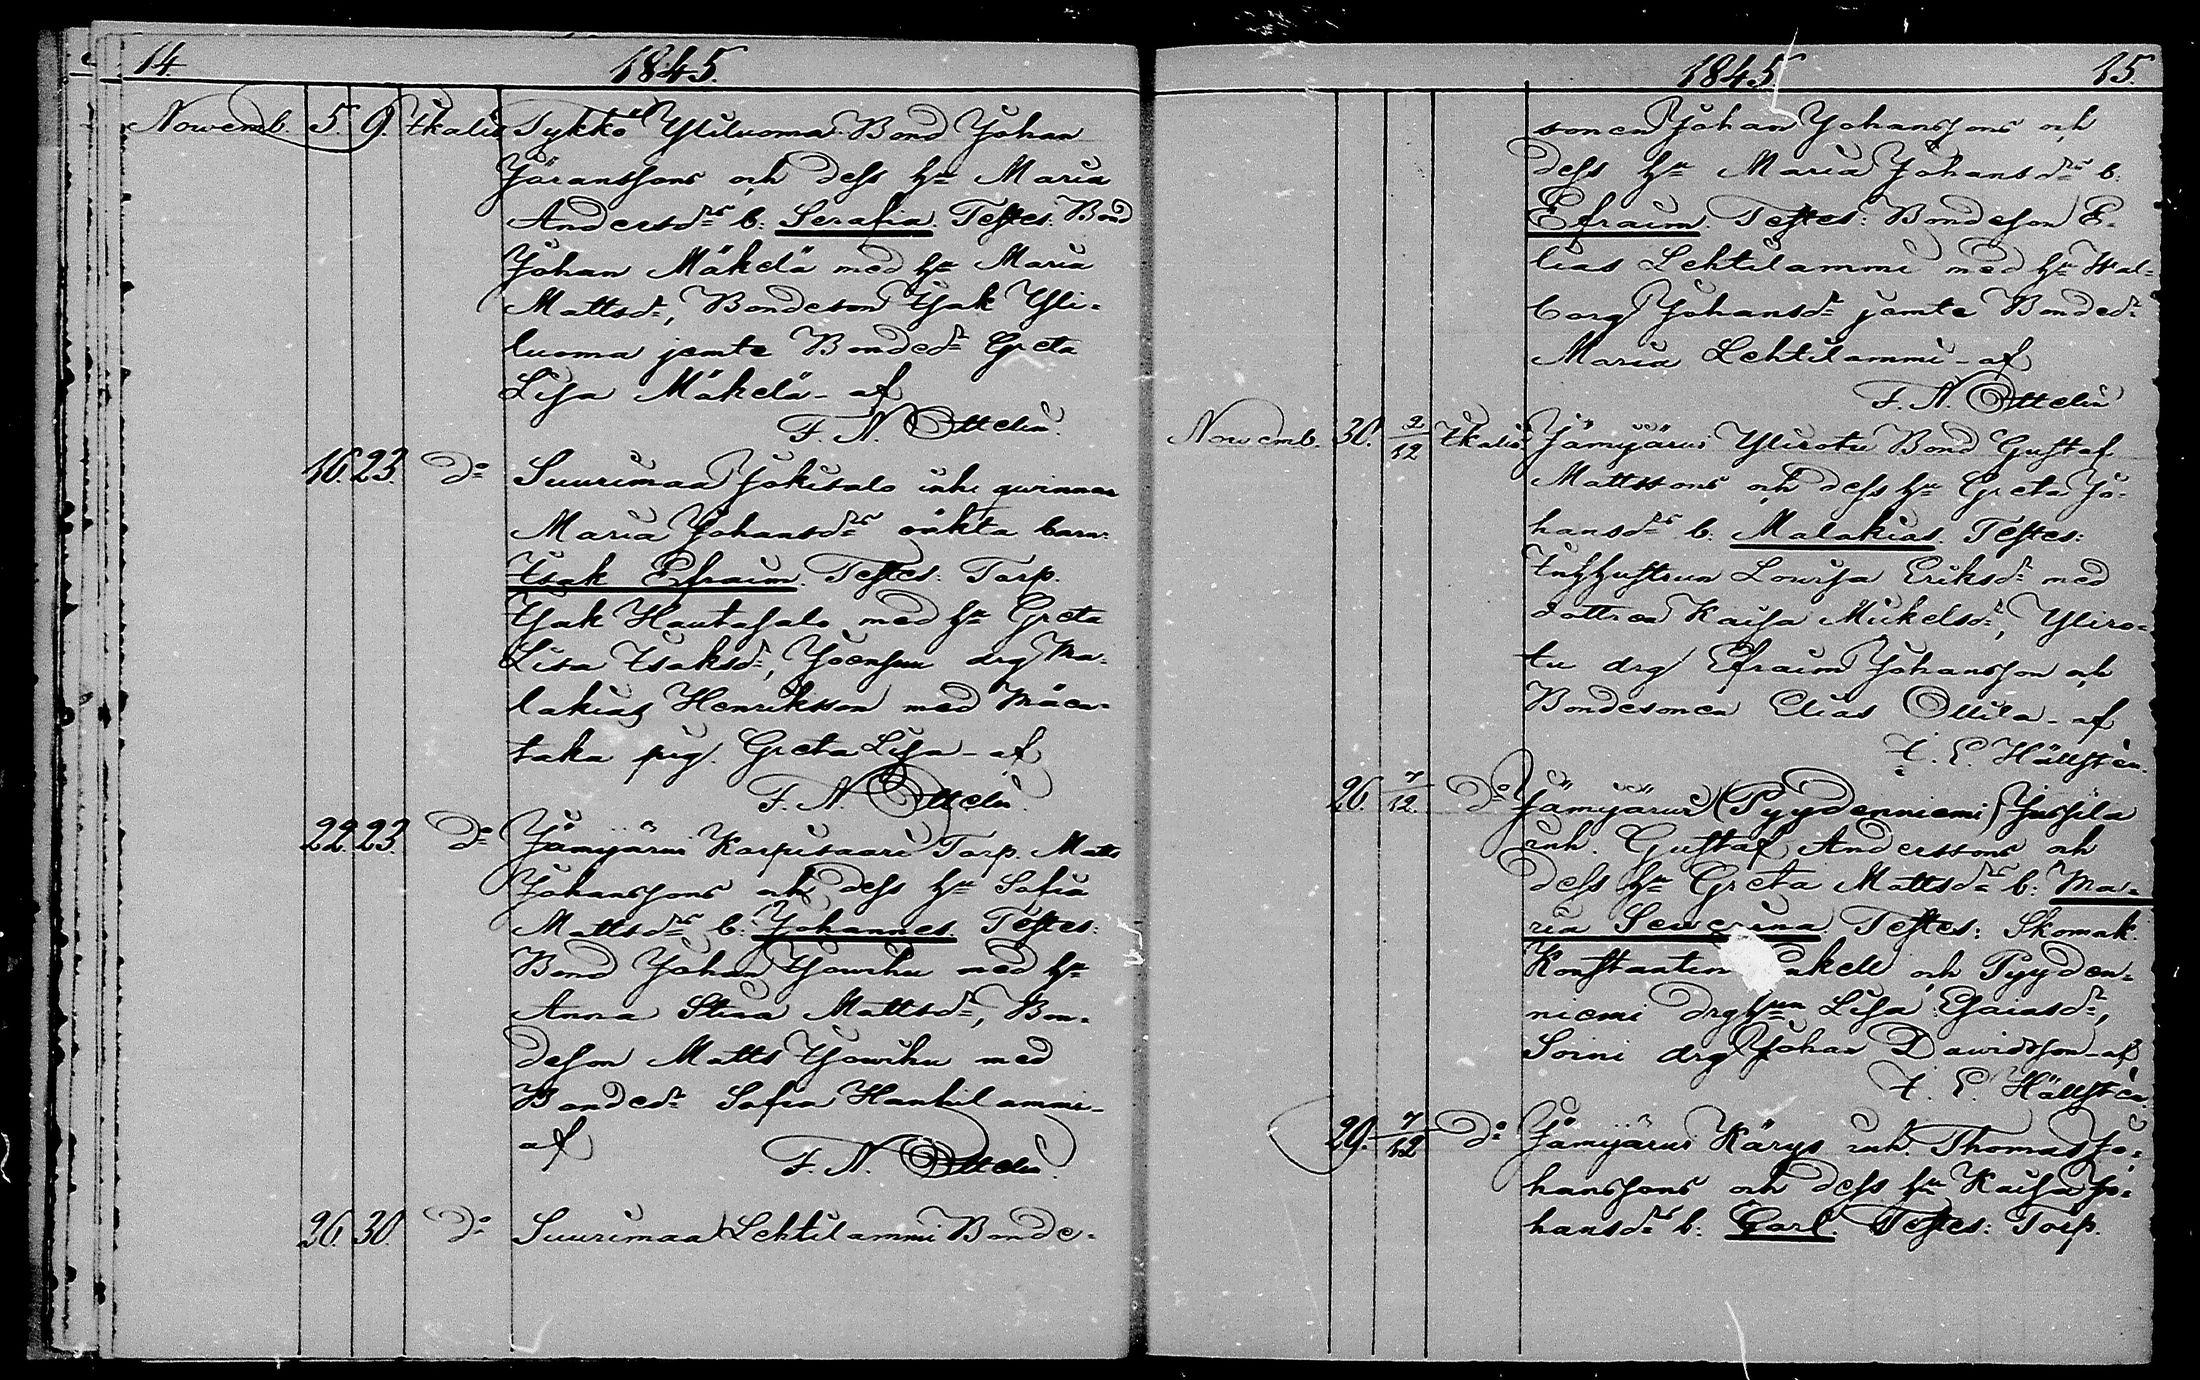 14. 1845.
Novemb. 5. 9. Ikalis Tykkö Yliluoma Bond Johan
Jöranssons och dess h:u Maria
Andersd:rs b: Serafia. Testes: Bond
Johan Mäkelä med h:u Maria
Mattsd:r, Bondeson Isak Yli-
luoma jemte Bonded:r Greta
Lisa Mäkelä - af
F. N. Ottelin.
16. 23. d:o Suurimaa Jokisalo inh: qvinnan
Maria Johansd:rs oäkta barn:
Isak Efraim. Testes: Torp.
Isak Hautasalo med h:u Greta
Lisa Isaksd:r, Joensuu drg Ma-
lakias Henriksson med
taka pig. Greta Lisa - af
F. N. Ottelin.
22. 23. d:o Jämijärvi Karpisaari Torp. Matts
Johanssons och dess h:u Sofia
Mattsd:rs b: Johannes. Testes:
Bond Johan Yowihu med h:u
Anna Stina Mattsd:r, Bon-
deson Matts Yowihu med
Bonded:r Sofia Hankilammi -
af
F. N. Ottelin.
26. 30. d:o Suurimaa Lehtilammi Bonde-
1845 15.
sonen Johan Johanssons och
dess h:u Maria Johansd:rs b:
Efraim. Testes: Bondeson E-
lias Lehtilammi med h:u Wal-
borg Johansd:r jemte Bonded:r
Maria Lehtilammi - af
F. N. Ottelin
Novemb. 30. 2/12 Ikalis Jämijärvi Ylirotu Bond Gustaf
Mattssons och dess h:u Greta Jo-
hansd:rs b: Malakias. Testes:
Inhhustrun Lovisa Eriksd:r med
dottren Kaisa Mickelsd:r, Yliro-
tu drg Efraim Johansson och
Bondesonen Elias Ollila - af
F. E. Hällstén.
26. 7/12 d:o Jämijärvi (Pyydenniemi) Jussila
inh. Gustaf Anderssons och
dess h:u Greta Mattsd:rs b: Ma-
ria Severina Testes: Skomak.
Konstantin och Pyyden-
niemi drgh:un Lisa Esaiasd:r,
Soini drg Johan Davidsson - af
F. E. Hällstén.
29. 7/12 d:o Jämijärvi Kärys inh. Thomas Jo-
hanssons och dess h:u Kaisa Jo-
hansd:rs b: Carl. Testes: Torp.